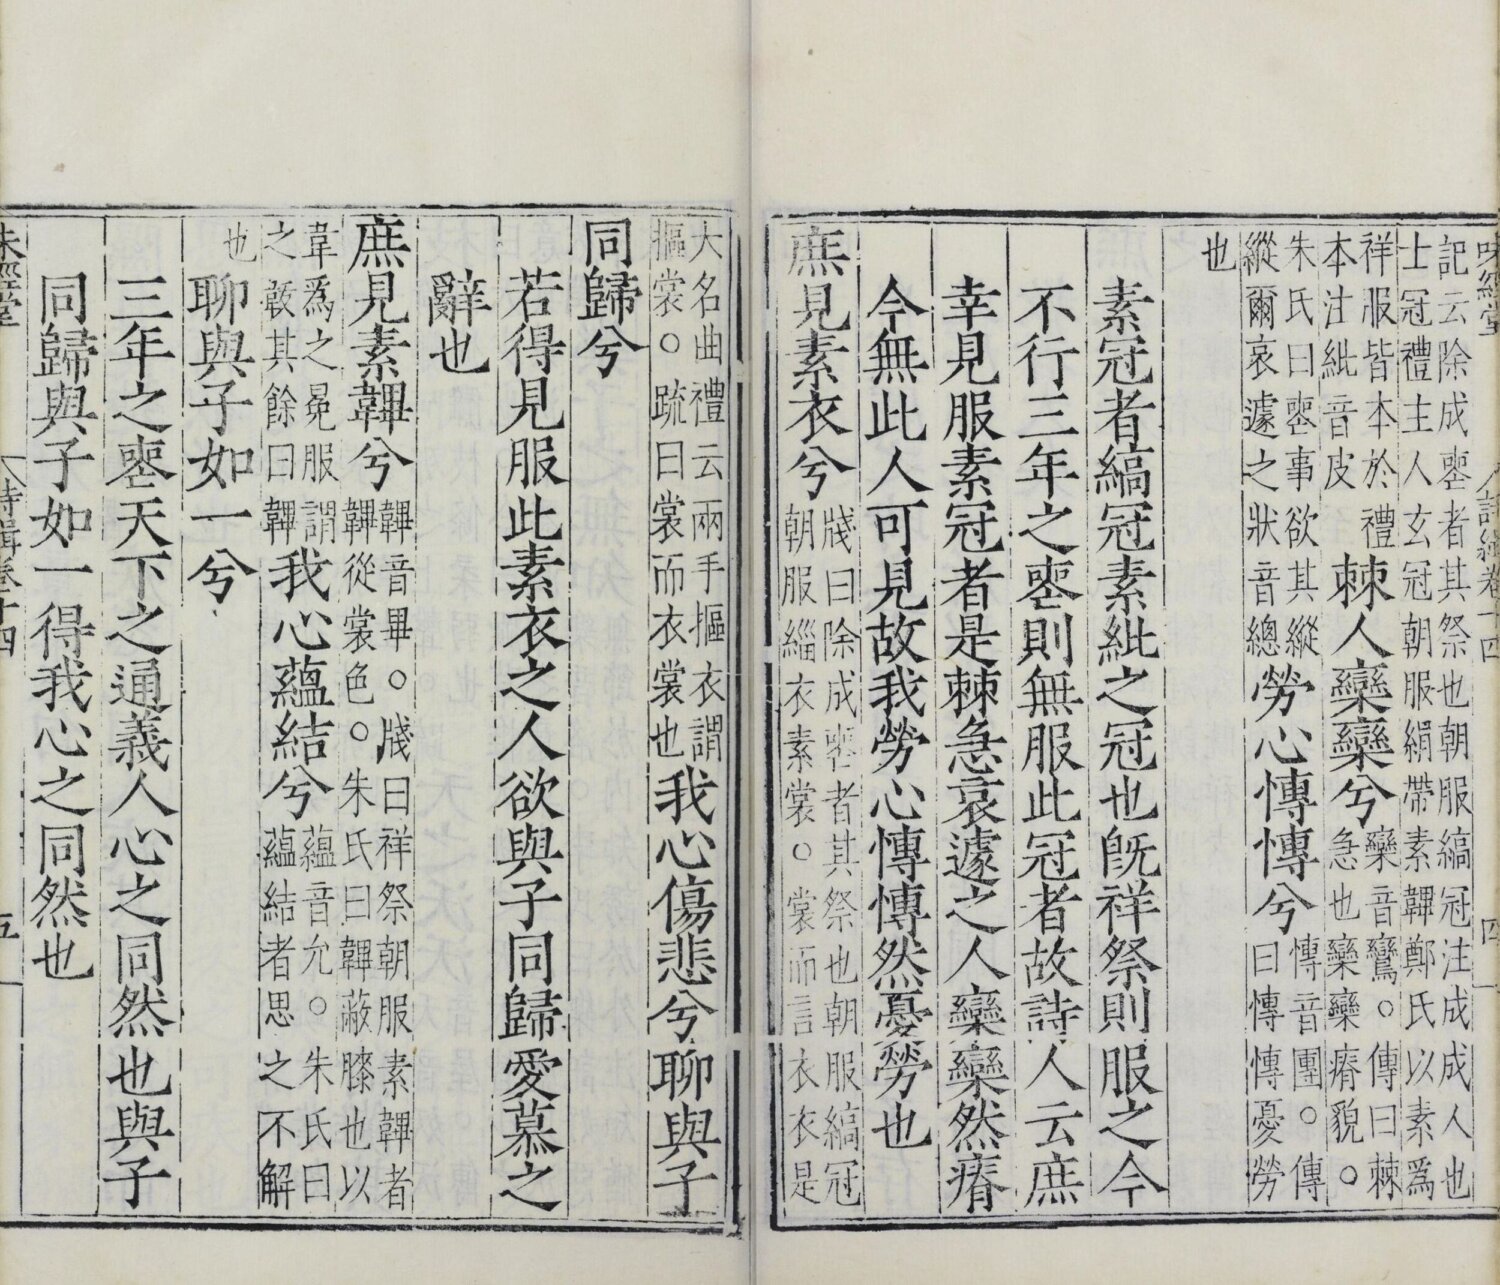 味經堂 詩緝卷十四 四
記云除成䘮者其祭也朝服縞冠注成成人也
士冠禮主人玄冠朝服緇帶素韠鄭氏以素爲
祥服皆本於禮
本注紕音皮
棘人欒欒兮
欒音鸞。傳曰棘
急也欒欒瘠貌。
朱氏曰䘮事欲其縱
縱爾哀遽之狀音總
勞心慱慱兮
慱音團。傳
曰慱慱憂勞
也
素冠者縞冠素紕之冠也旣祥祭則服之今
不行三年之䘮則無服此冠者故詩人云庶
幸見服素冠者是棘急哀遽之人欒欒然瘠
今無此人可見故我勞心慱慱然憂勞也
庶見素衣兮
牋曰除成䘮者其祭也朝服縞冠
朝服緇衣素裳。裳而言衣衣是
大名曲禮云兩手摳衣謂
摳裳。疏曰裳而衣裳也
我心傷悲兮聊與子
同歸兮
若得見服此素衣之人欲與子同歸愛慕之
辭也
庶見素韠兮
韠音畢。牋曰祥祭朝服素韠者
韠從裳色。朱氏曰韠蔽膝也以
韋爲之冕服謂
之韍其餘曰韠
我心蘊結兮
蘊音允。朱氏曰
蘊結者思之不解
也
聊與子如一兮
三年之䘮天下之通義人心之同然也與子
同歸與子如一得我心之同然也
味經堂 詩緝卷十四 五